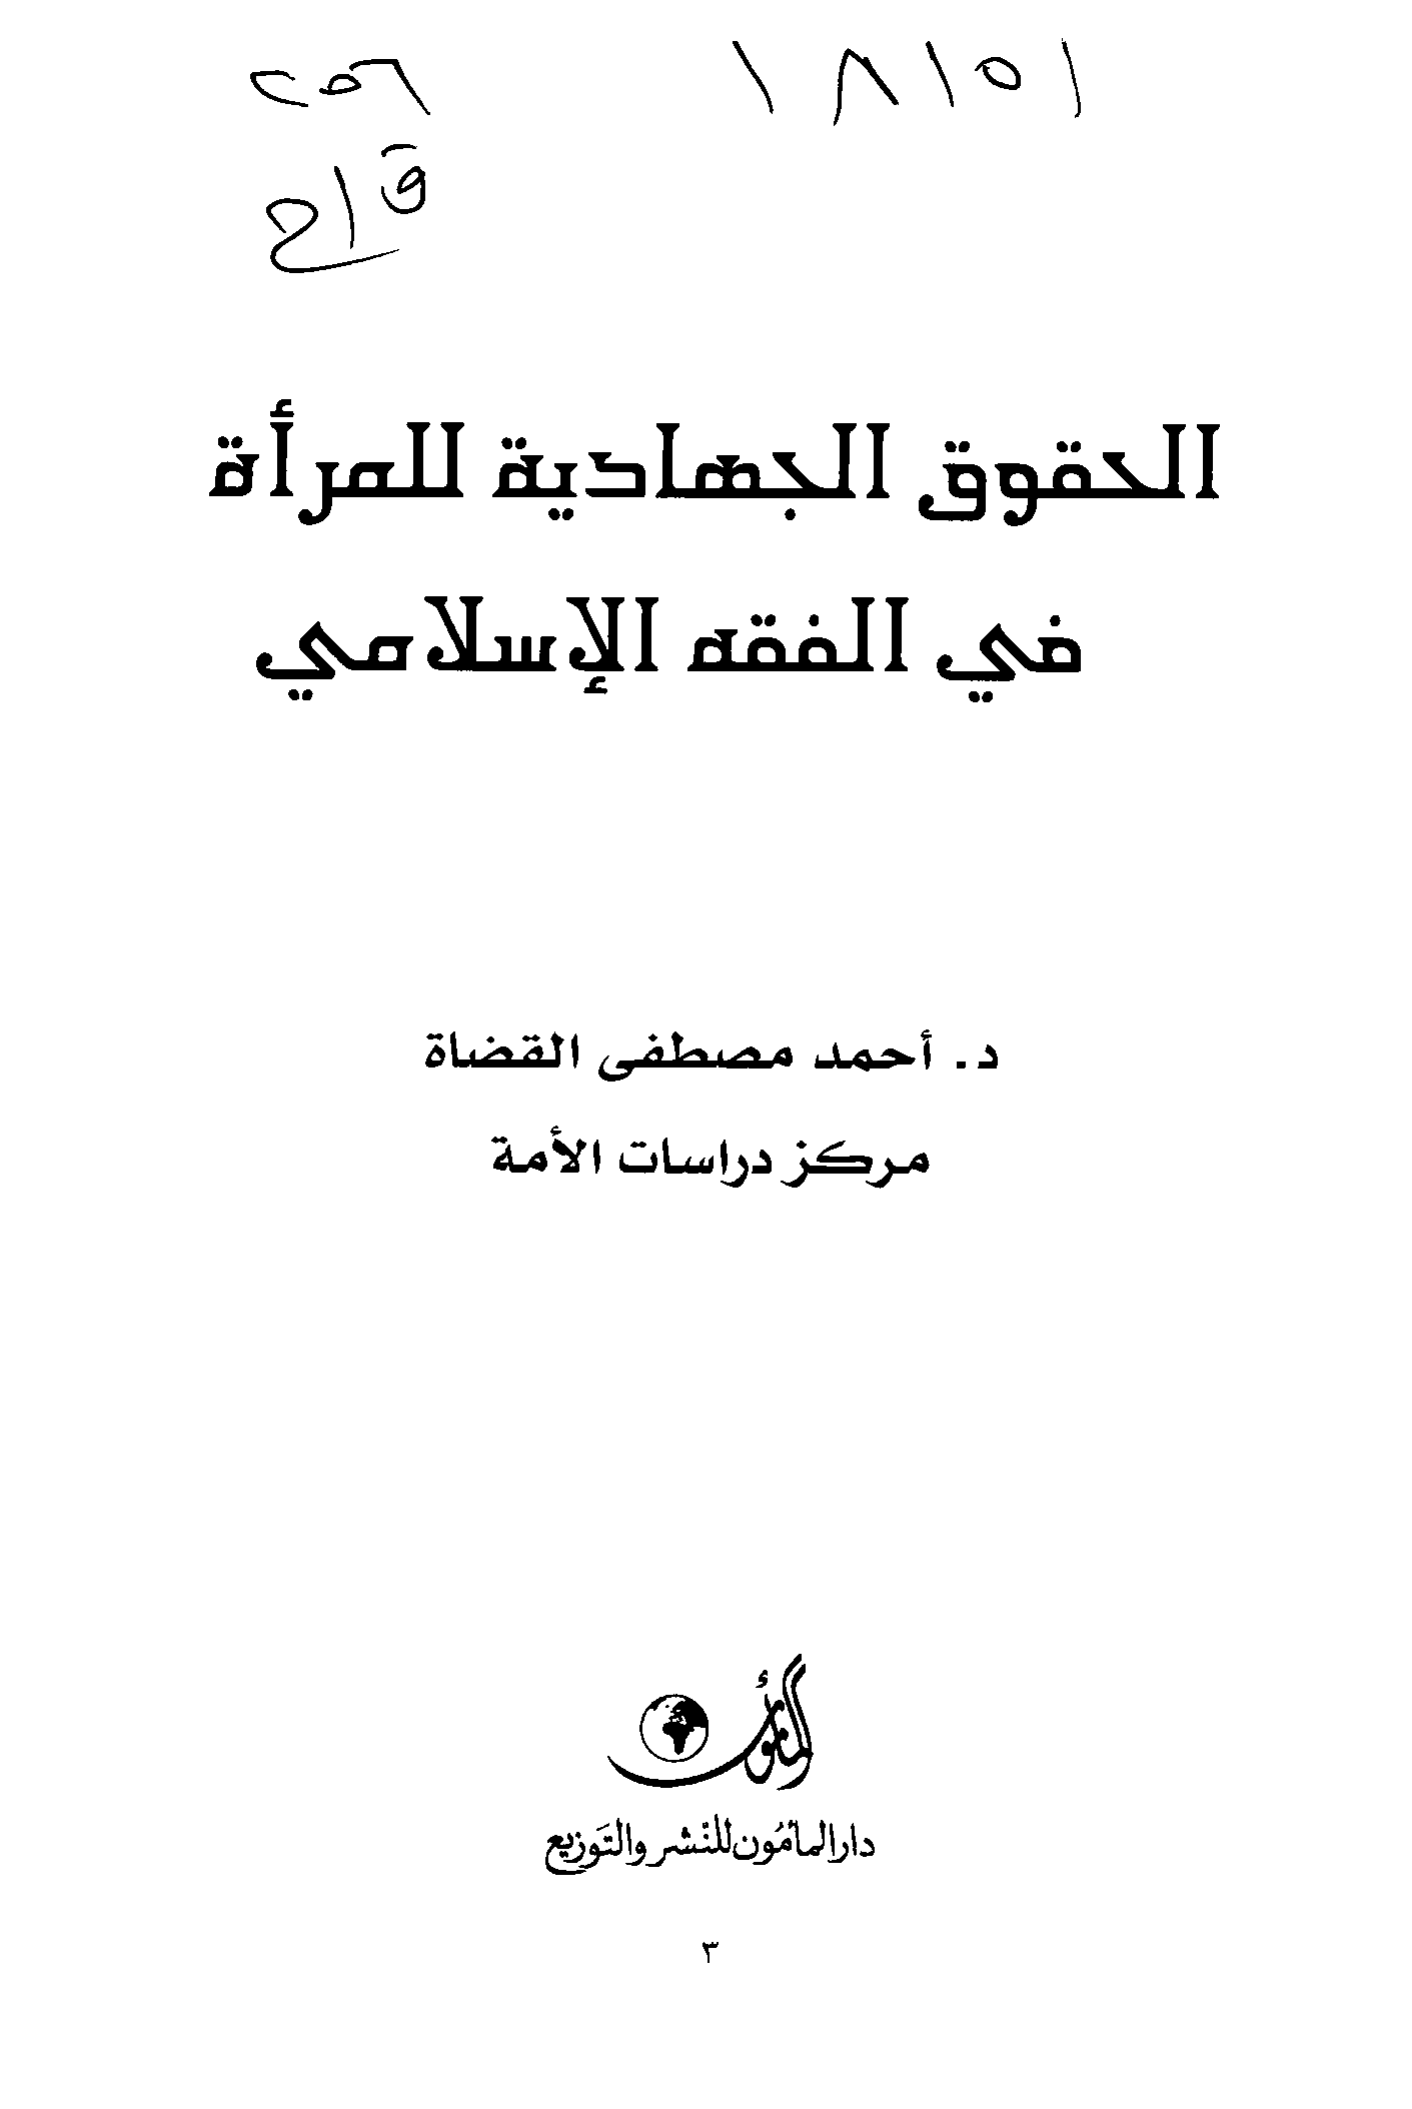 الحقوق الجهادية للمرأة
في الفقه الإسلامي
د. أحمد مصطفى القضاة
مركز دراسات الأمة
المأمون
دار المأمُون للنّشر والتَوزيع
٣